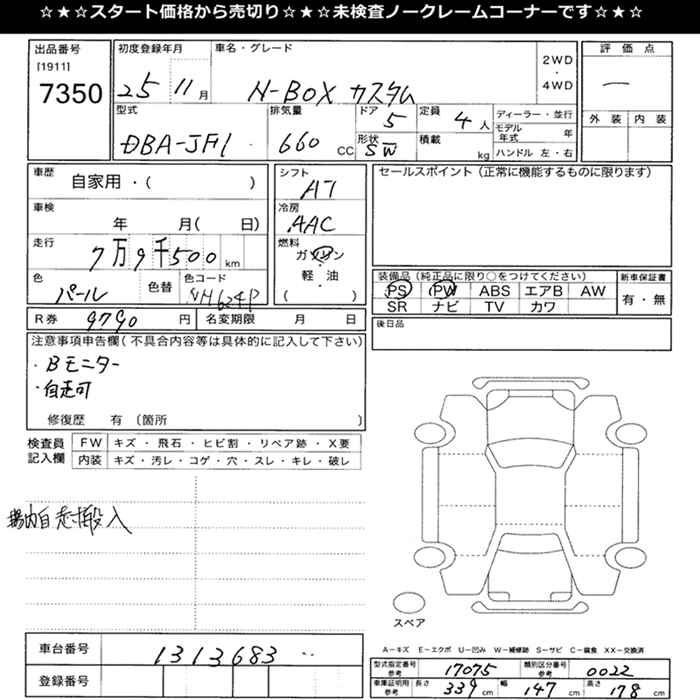 ☆★☆★スタート価格から売切り☆★☆★未検査ノークレームコーナーです☆★☆★☆
出品番号
[1911]
7350
初度登録年月
25 11月
車名・グレード
N-BOX カスタム
2WD
・
4WD
評価点
—
外装 内装
型式
DBA-JF1
排気量
660 CC
ドア
5
形状
SW
定員
4人
積載
kg
ディーラー・並行
モデル年式 年
ハンドル 左・右
車歴
自家用・( )
車検
年 月( 日)
走行
7万9千500km
色
パール
色替
色コード
NH624P
シフト
AT
冷房
AAC
燃料
ガソリン
・
軽・油
( )
セールスポイント(正常に機能するものに限ります)
装備品(純正品に限り○をつけてください)
PS PW ABS エアB AW
SR ナビ TV カワ
新車保証書
有・無
R券 9790円
名変期限 月 日
後日品
注意事項申告欄(不具合内容等は具体的に記入して下さい)
・Bモニター
・自走可
修復歴 有〔箇所 〕
検査員
記入欄
FW キズ・飛石・ヒビ割・リペア跡・X要
内装 キズ・汚レ・コゲ・穴・スレ・キレ・破レ
場内自走搬入
スペア
車台番号 1313683
登録番号
A－キズ E－エクボ U－凹み W－補修跡 S－サビ C－腐食 XX－交換済
型式指定番号
参考
17075
類別区分番号
参考
0022
車庫証明用
参考
長さ 339cm 幅 147cm 高さ 178cm